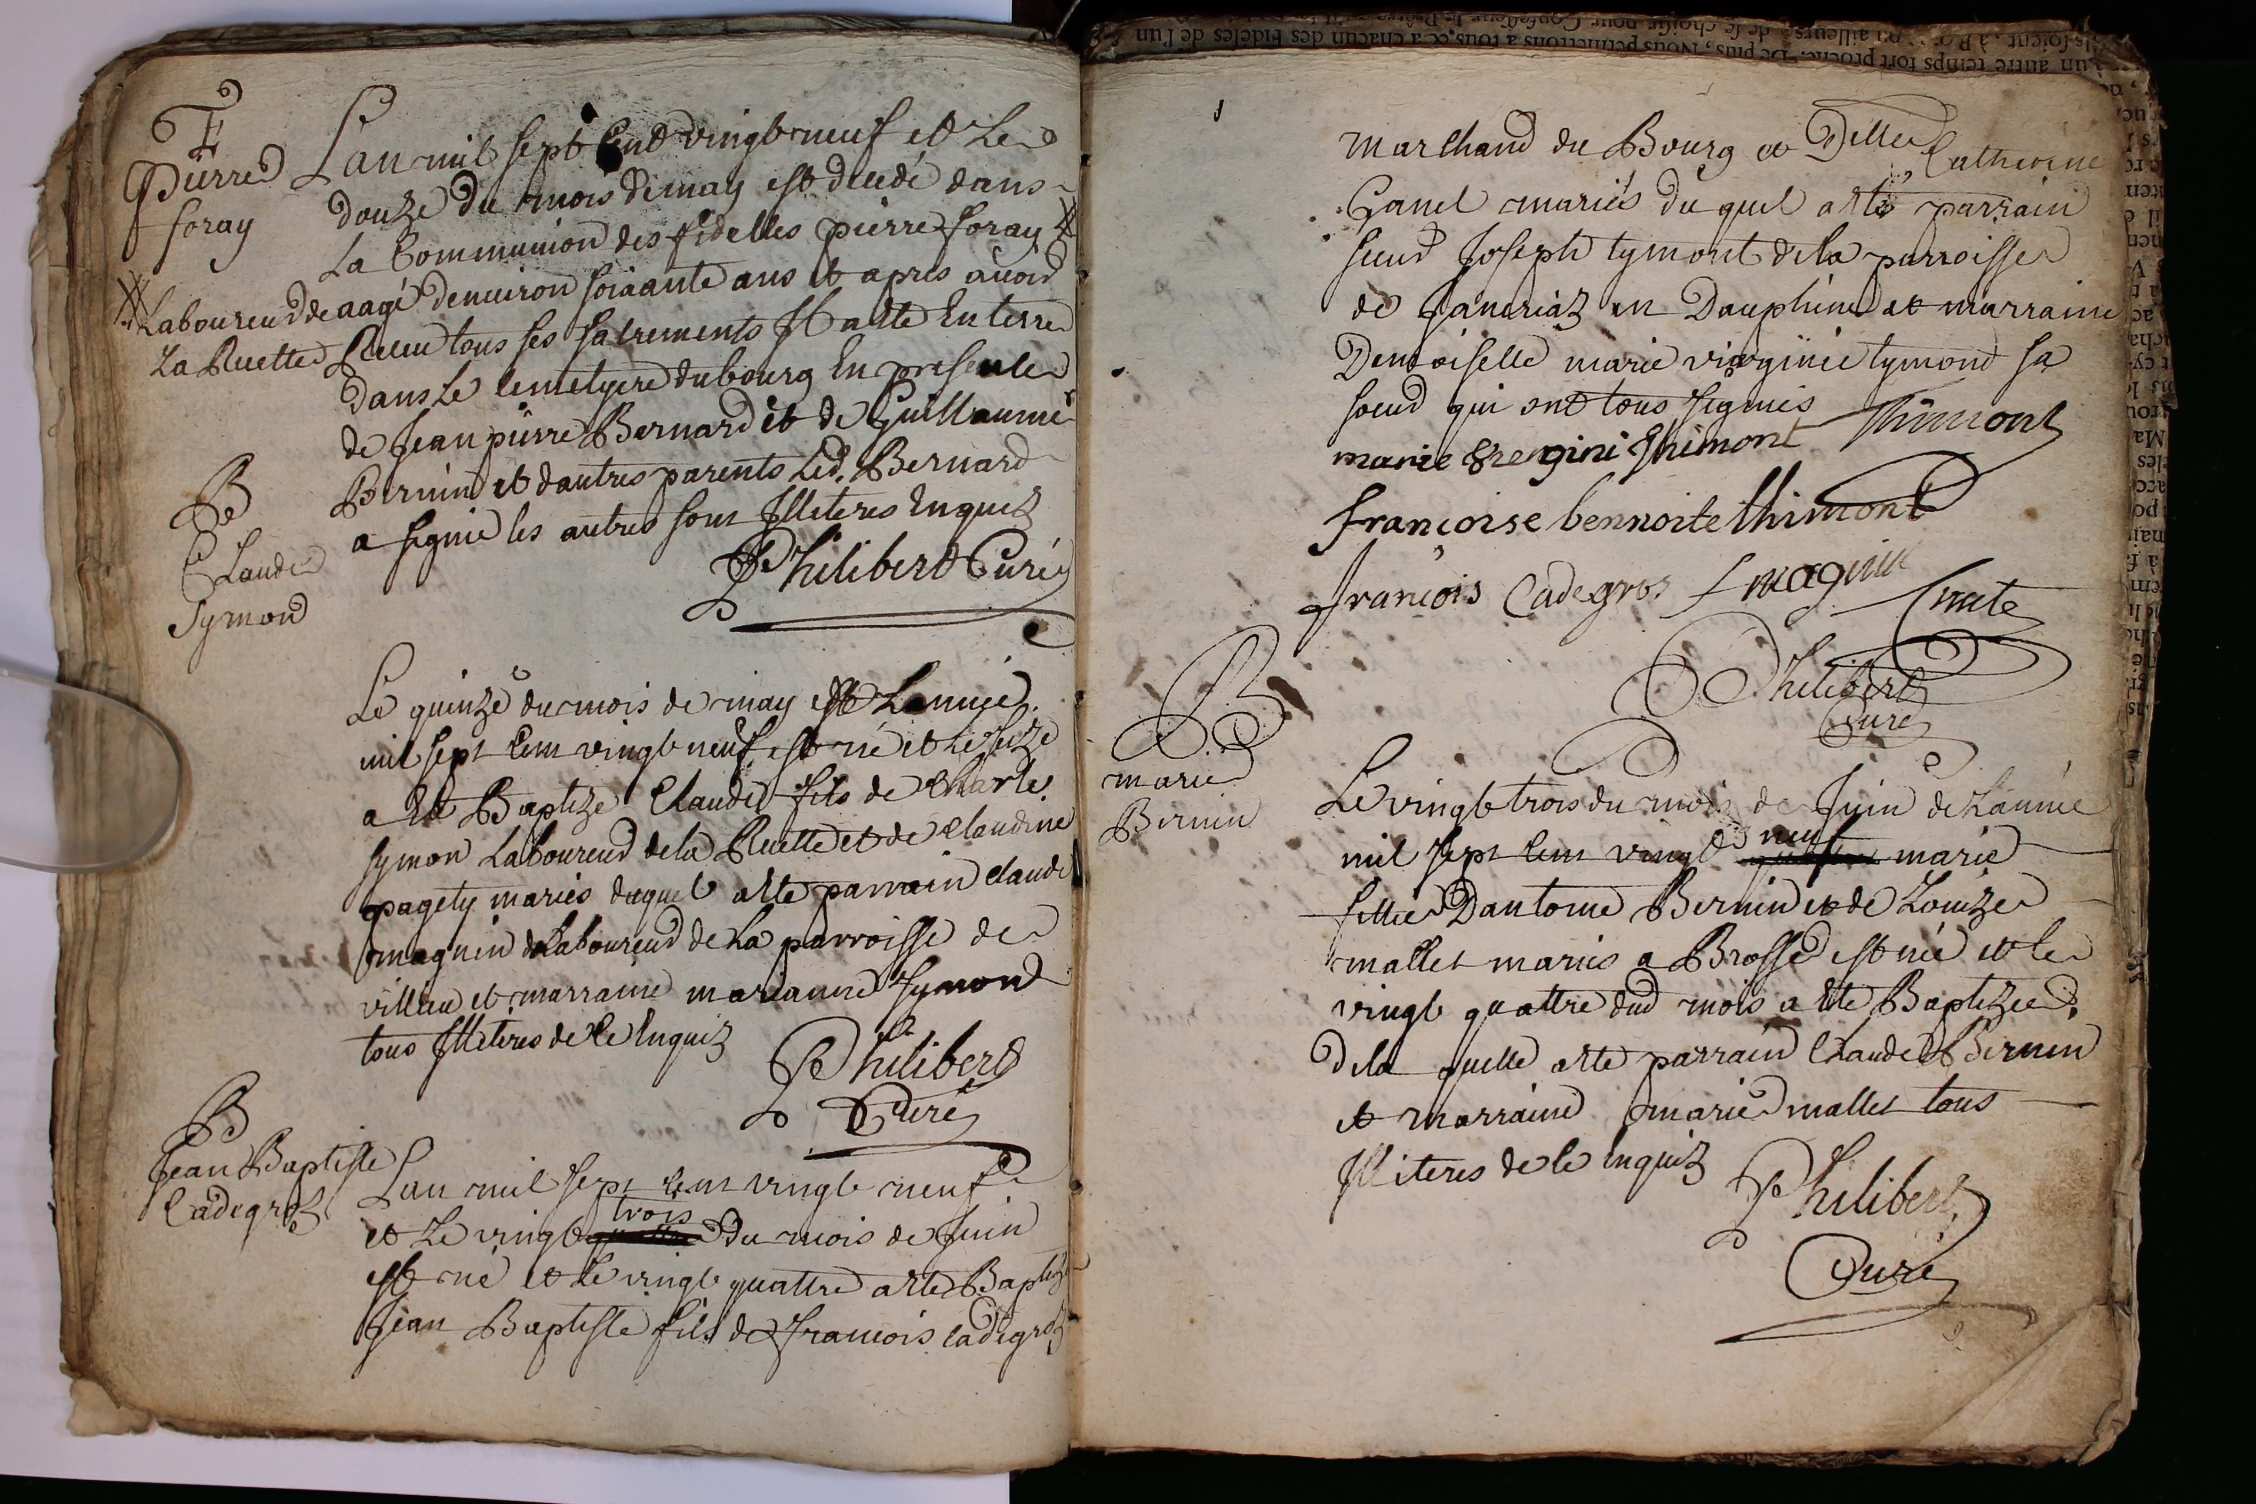 Pierre
foray
L'an mil sept Cent vingt neuf et Le
douze du mois de may est decedé dans
La Communion des fidelles pierre foray #
# Laboureur de
La Ruette
aagé denuiron soixante ans et apres auoir
Receu tous ses sacrements Il a este Enterré
dans Le cemetyere du bourg En presence
de Jean pierre Bernard et de Guillaume
Bernin et dautres parents Led. Bernard
a signé les autres sont Illiteres Enquis
Philibert Curé
B
Claude
Symond
Le quinze du mois de may et Lannée
mil sept cent vingt neuf est né et le seize
a Eté Baptizé Claude fils de Charle
symon Laboureur de la Ruette et de claudine
pagety mariés duquel a ete parrain claude
magnin Laboureur de La parroisse de
villieu et marraine marianne symond
tous Illiteres de ce Enquis
Philibert
Curé
B
Jean Baptiste
Cadegros
Lan mil sept cent vingt neuf
trois
et Le vingt du mois de Juin
est né et Le vingt quattre a ete Baptizé
Jean Baptiste fils de francois cadegros
marchand du Bourg et Delle Catherine
Ganel mariés du quel a ete parrain
sieur Joseph tymont de la parroisse
de Janeriaz en Dauphiné et marraine
Demoiselle marie virginie tymond sa
soeur qui ont tous signés
marie Thimont Thimont
francoise bennoite thimont
francois Cadegros
Philibert
Curé
B
marie
Bernin
Le vingt trois du mois de Juin de Lannée
neuf
mil sept cent vingt marie
fille Dantoine Bernin et de Louize
mallet mariés a Brosse est née et le
vingt quattre dud mois a ete Baptizée
de la quelle a ete parrain Claude Bernin
et marraine marie mallet tous
Illiteres de ce Enquis
Philibert
Curé